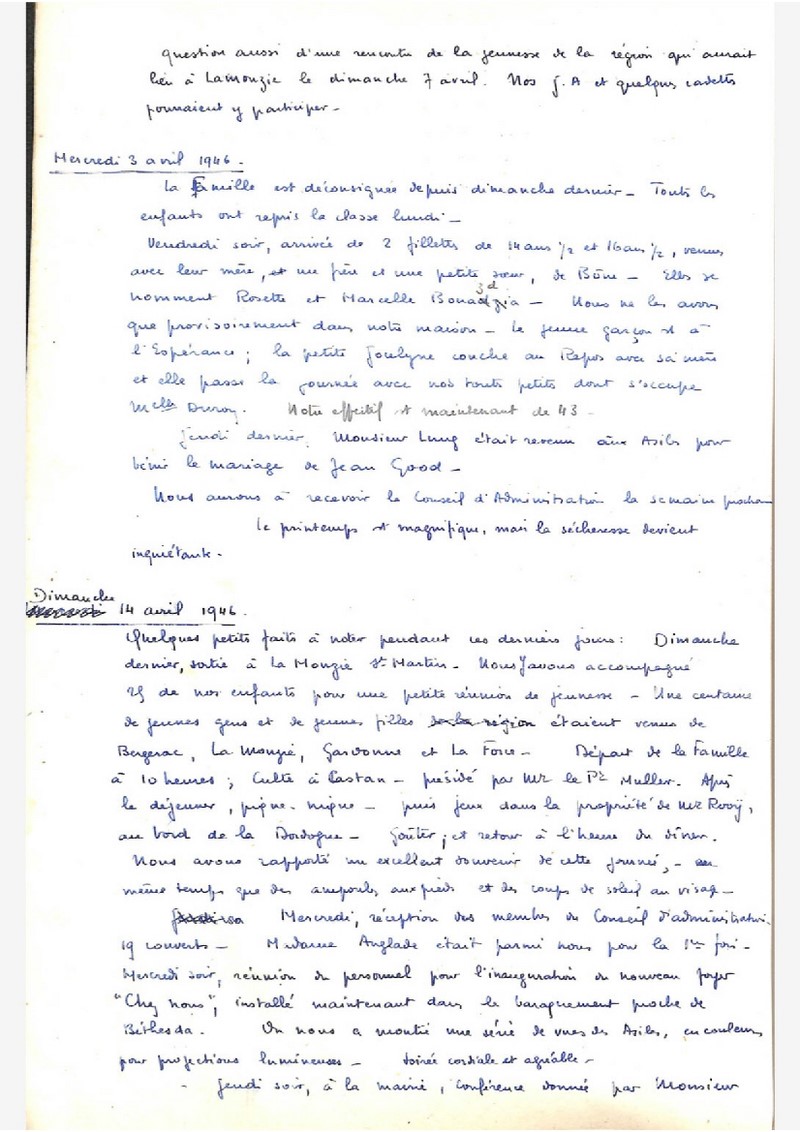 question aussi d'une rencontre de la jeunesse de la région qui aurait
lieu à Lamonzie le dimanche 7 avril. Nos J.A et quelques cadettes
pourraient y participer -
Mercredi 3 avril 1946.
La Famille est déconsignée depuis dimanche dernier - Tous les
enfants ont repris la classe lundi -
Vendredi soir, arrivée de 2 fillettes de 14 ans 1/2 et 16 ans 1/2, venues
avec leur mère, et un frère et une petite sœur, de Bône - Elles se
nomment Rosette et Marcelle - Nous ne les avons
que provisoirement dans notre maison - le jeune garçon est à
l'Espérance ; la petite Jocelyne couche au Repos avec sa mère
et elle passe la journée avec nos touts petits dont s'occupe
Melle Duroy. Notre effectif est maintenant de 43 -
Jeudi dernier, Monsieur Lung était revenu aux Asiles pour
bénir le mariage de Jean Good -
Nous aurons à recevoir le Conseil d'Administration la semaine prochaine
le printemps est magnifique, mais la sécheresse devient
inquiétante.
Dimanche
14 avril 1946.
Quelques petits faits à noter pendant ces derniers jours : Dimanche
dernier, sortie à La Monzie St Martin - Nous avons accompagné
de nos enfants pour une petite réunion de jeunesse - Une centaine
de jeunes gens et de jeunes filles de la région étaient venus de
Bergerac, La Monzie, Gardonne et La Force - Départ de la Famille
à 10 heures ; Culte à Castan - présidé par Mr le Pr Muller. Après
le déjeuner, pique-nique - puis jeux dans la propriété de Mr Rooÿ,
au bord de la Dordogne - Goûter ; et retour à l'heure du dîner.
Nous avons rapporté un excellent souvenir de cette journée, - en
même temps que des ampoules aux pieds et des coups de soleil au visage -
Mercredi, réception des membres du Conseil d'administration.
19 couverts - Madame Anglade était parmi nous pour la 1ère fois -
Mercredi soir, réunion du personnel pour l'inauguration du nouveau foyer
"Chez nous", installé maintenant dans le baraquement proche de
Béthesda. On nous a montré une série de vues des Asiles, en couleurs
pour projections lumineuses - Soirée cordiale et agréable -
- Jeudi soir, à la mairie, Conférence donnée par Monsieur